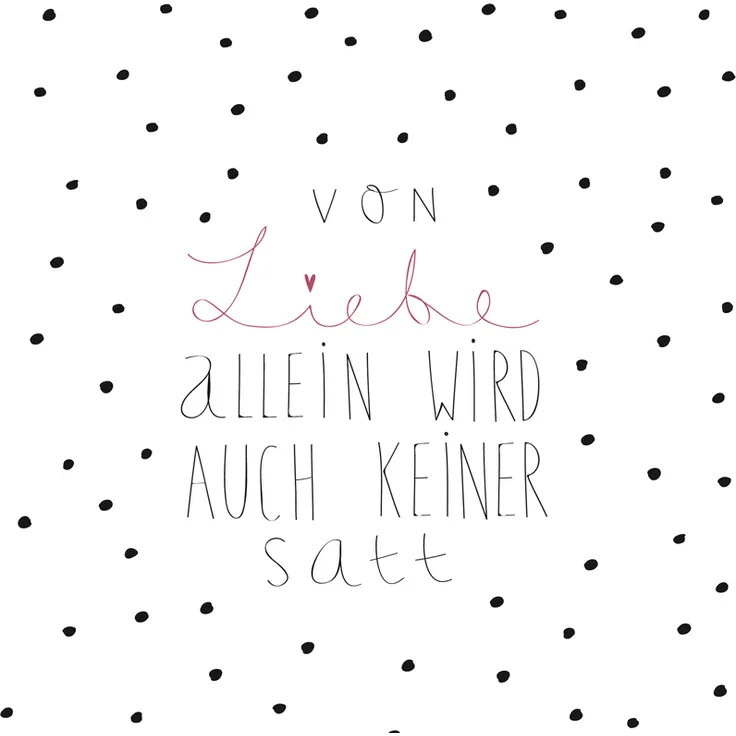 VON
Liebe
aLLEiN WiRD
AUCH KEiNER
satt